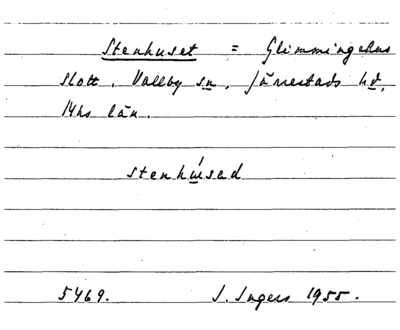 Stenhuset = Glimmingehus
slott, Vallby sn, Järrestads hd,
M̶hs län.
stenhúsad
5469. I. Ingers 1955.